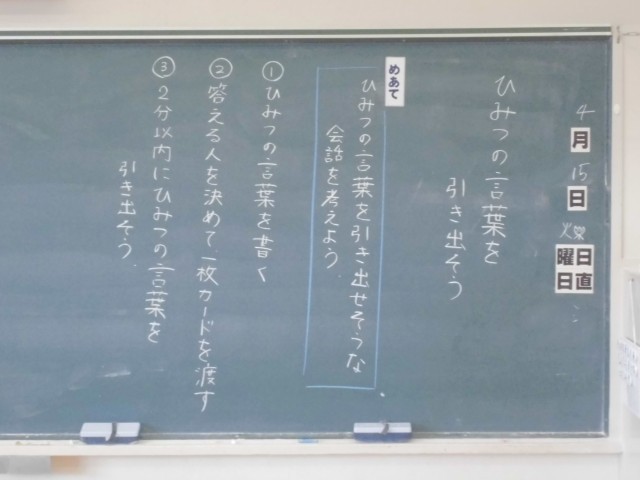 4月15日
火曜日
日直
ひみつの言葉を
引き出そう
めあて
ひみつの言葉を引き出せそうな
会話を考えよう。
①ひみつの言葉を書く
②答える人を決めて一枚カードを渡す
③2分以内にひみつの言葉を
引き出そう。